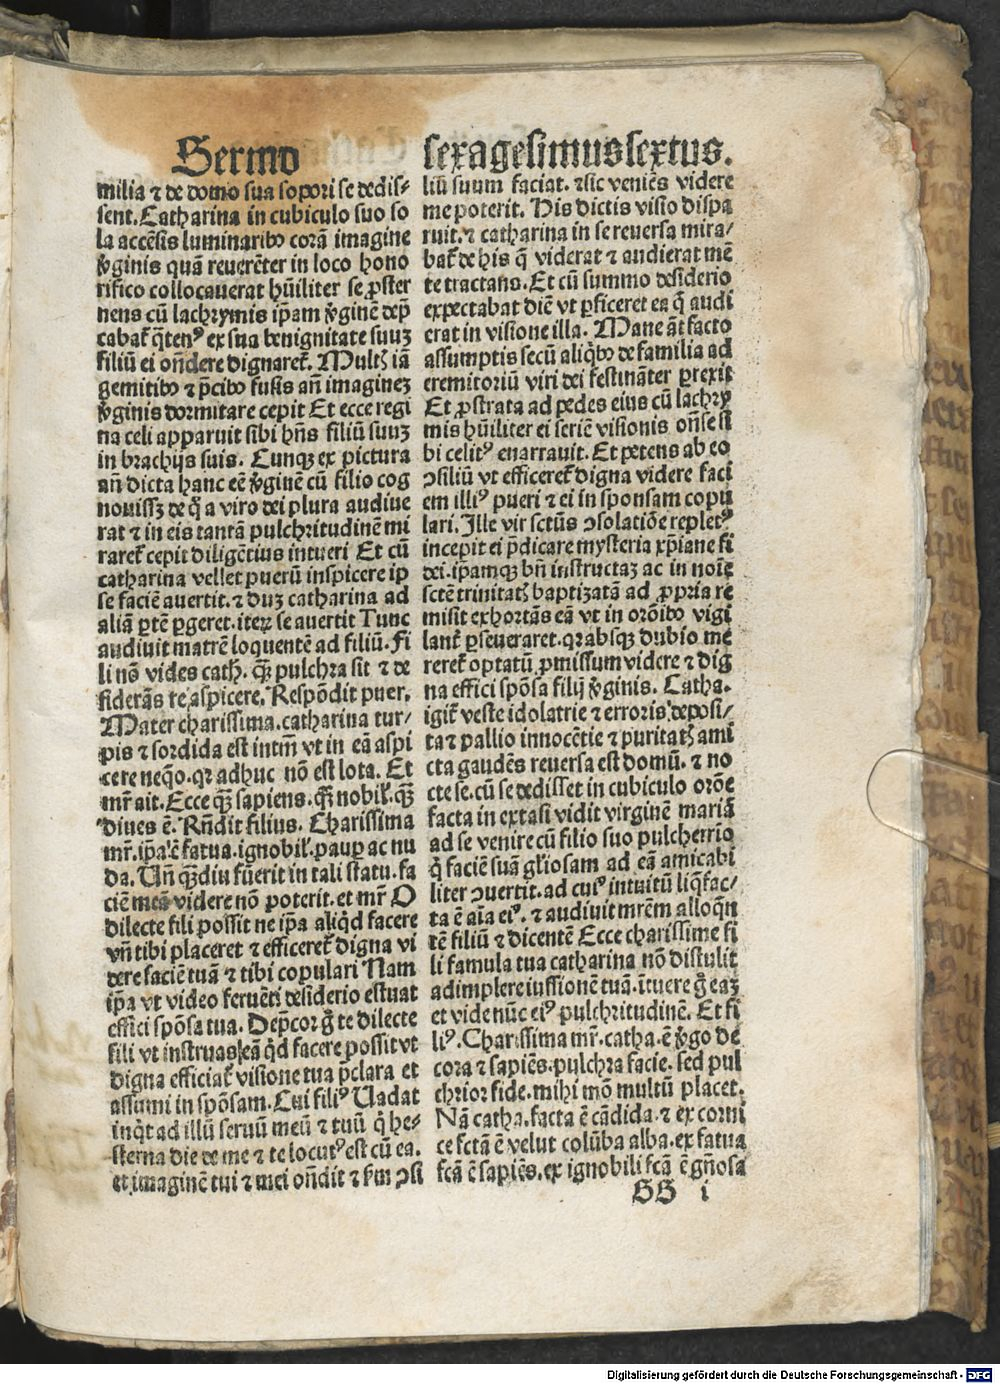 Sermo
milia ⁊ de domo sua sopori se dedis⸗
sent. Catharina in cubiculo suo so
la accēsis luminaribꝰ corā imagine
v̓ginis quā reuerēter in loco hono
rifico collocauerat hūiliter se ꝓster
nens cū lachrymis ip̄am v̓ginē dep̄
cabat̉ q̄tenꝰ ex sua benignitate suuꝫ
filiū ei on̄dere dignaret̉. Multꝭ iā
gemitibꝰ ⁊ p̄cibꝰ fusis an̄ imagineꝫ
v̓ginis dormitare cepit Et ecce regi
na celi apparuit sibi hn̄s filiū suuꝫ
in brachijs suis. Cunqꝫ ex pictura
an̄ dicta hanc eē v̓ginē cū filio cog
nouissꝫ de q̓ a viro dei plura audiue
rat ⁊ in eis tantā pulchritudinē mi
raret̉ cepit diligētius intueri Et cū
catharina vellet puerū inspicere ip
se faciē auertit. ⁊ duꝫ catharina ad
aliā ꝑtē ꝑgeret. iteꝝ se auertit Tunc
audiuit matrē loquentē ad filiū. Fi
li nō vides cath̄. qꝫ̄ pulchra sit ⁊ de
siderās te aspicere. Respōdit puer.
Mater charissima. catharina tur⸗
pis ⁊ sordida est intm̄ vt in eā aspi
cere neq̄o. qꝛ adhuc nō est lota. Et
mr̄ ait. Ecce qꝫ̄ sapiens. qꝫ̄ nobil̓. qꝫ̄
diues ē. Rn̄dit filius. Charissima
mr̄. ip̄a ē fatua. ignobil̓. pauꝑ ac nu
da. Un̄ qꝫ̄diu fūerit in tali statu. fa
ciē meā videre nō poterit. et mr̄ O
dilecte fili possit ne ip̄a aliq̓d facere
vn̄ tibi placeret ⁊ efficeret̉ digna vi
dere faciē tuā ⁊ tibi copulari Nam
ip̄a vt video feruēti desiderio estuat
effici spōsa tua. Dep̄cor g̊ te dilecte
fili vt instruas eā q̓d facere possit vt
digna efficiat̉ visione tua p̄clara et
assumi in spōsam. Cui filiꝰ Uadat
inq̓t ad illū seruū meū ⁊ tuū q̓ he⸗
sterna die de me ⁊ te locutꝰ est cū ea.
et imaginē tui ⁊ mei on̄dit ⁊ ẜm ꝯsi
sexagesimussextus.
liū suum faciat. ⁊ sic veniēs videre
me poterit. His dictis visio dispa
ruit. ⁊ catharina in se reuersa mira⸗
bat̉ de his q̄ viderat ⁊ audierat mē
te tractans. Et cū summo desiderio
expectabat diē vt ꝑficeret ea q̄ audi
erat in visione illa. Mane āt facto
assumptis secū aliq̓bꝰ de familia ad
eremitoriū viri dei festināter ꝑrexit
Et ꝓstrata ad pedes eius cū lachry
mis hūiliter ei seriē visionis on̄se si
bi celitꝰ enarrauit. Et petens ab eo
ꝯsiliū vt efficeret̉ digna videre faci
em illiꝰ pueri ⁊ ei in sponsam copu
lari. Ille vir sctūs ꝯsolatiōe repletꝰ
incepit ei p̄dicare mysteria xp̄iane fi
dei. ip̄amqꝫ bn̄ instructaꝫ ac in noīe
sctē trinitatꝭ baptizatā ad ꝓpria re
misit exhortās eā vt in orōibꝰ vigi
lant̉ ꝑseueraret. qꝛ absqꝫ dubio me
reret̉ optatū ꝓmissum videre ⁊ dig
na effici spōsa filij v̓ginis. Catha.
igit̉ veste idolatrie ⁊ erroris deposi⸗
ta ⁊ pallio innocētie ⁊ puritatꝭ ami
cta gaudēs reuersa est domū. ⁊ no
cte se. cū se dedisset in cubiculo orōe
facta in extasi vidit virginē mariā
ad se venire cū filio suo pulcherrīo
q̓ faciē suā gl̓iosam ad eā amicabi
liter ꝯuertit. ad cuiꝰ intuitū liq̄fac⸗
ta ē aīa eiꝰ. ⁊ audiuit mrēm alloq̄n
tē filiū ⁊ dicentē Ecce charissime fi
li famula tua catharina nō distulit
adimplere iussionē tuā. ītuere g̊ eaꝫ
et vide nūc eiꝰ pulchritudinē. Et fi
liꝰ. Charissima mr̄. catha. ē v̓go de
cora ⁊ sapiēs. pulchra facie. sed pul
chrior fide. mihi mō multū placet.
Nā catha. facta ē cādida. ⁊ ex corni
ce fctā ē velut colūba alba. ex fatua
fcā ē sapiēs. ex ignobili fcā ē gn̄osa
GG i
Digitalisierung gefördert durch die Deutsche Forschungsgemeinschaft - DFG